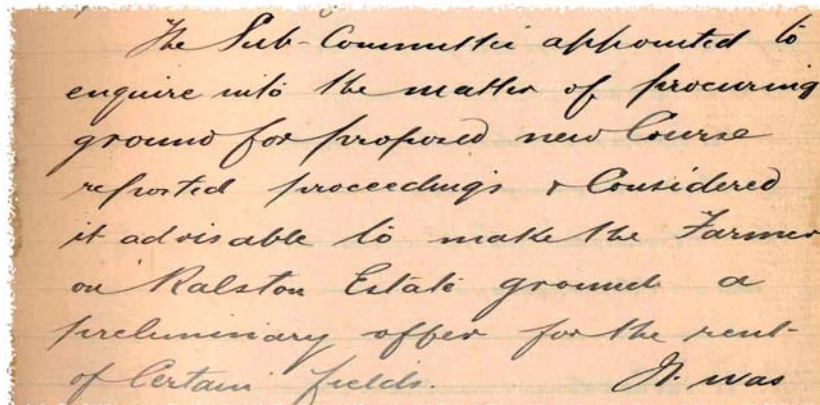 The Sub-Committee appointed to
enquire into the matter of procuring
ground for proposed new Course
reported proceedings & Considered
it advisable to make the Farmer
on Ralston Estate ground a
preliminary offer for the rent
of Certain fields. It was